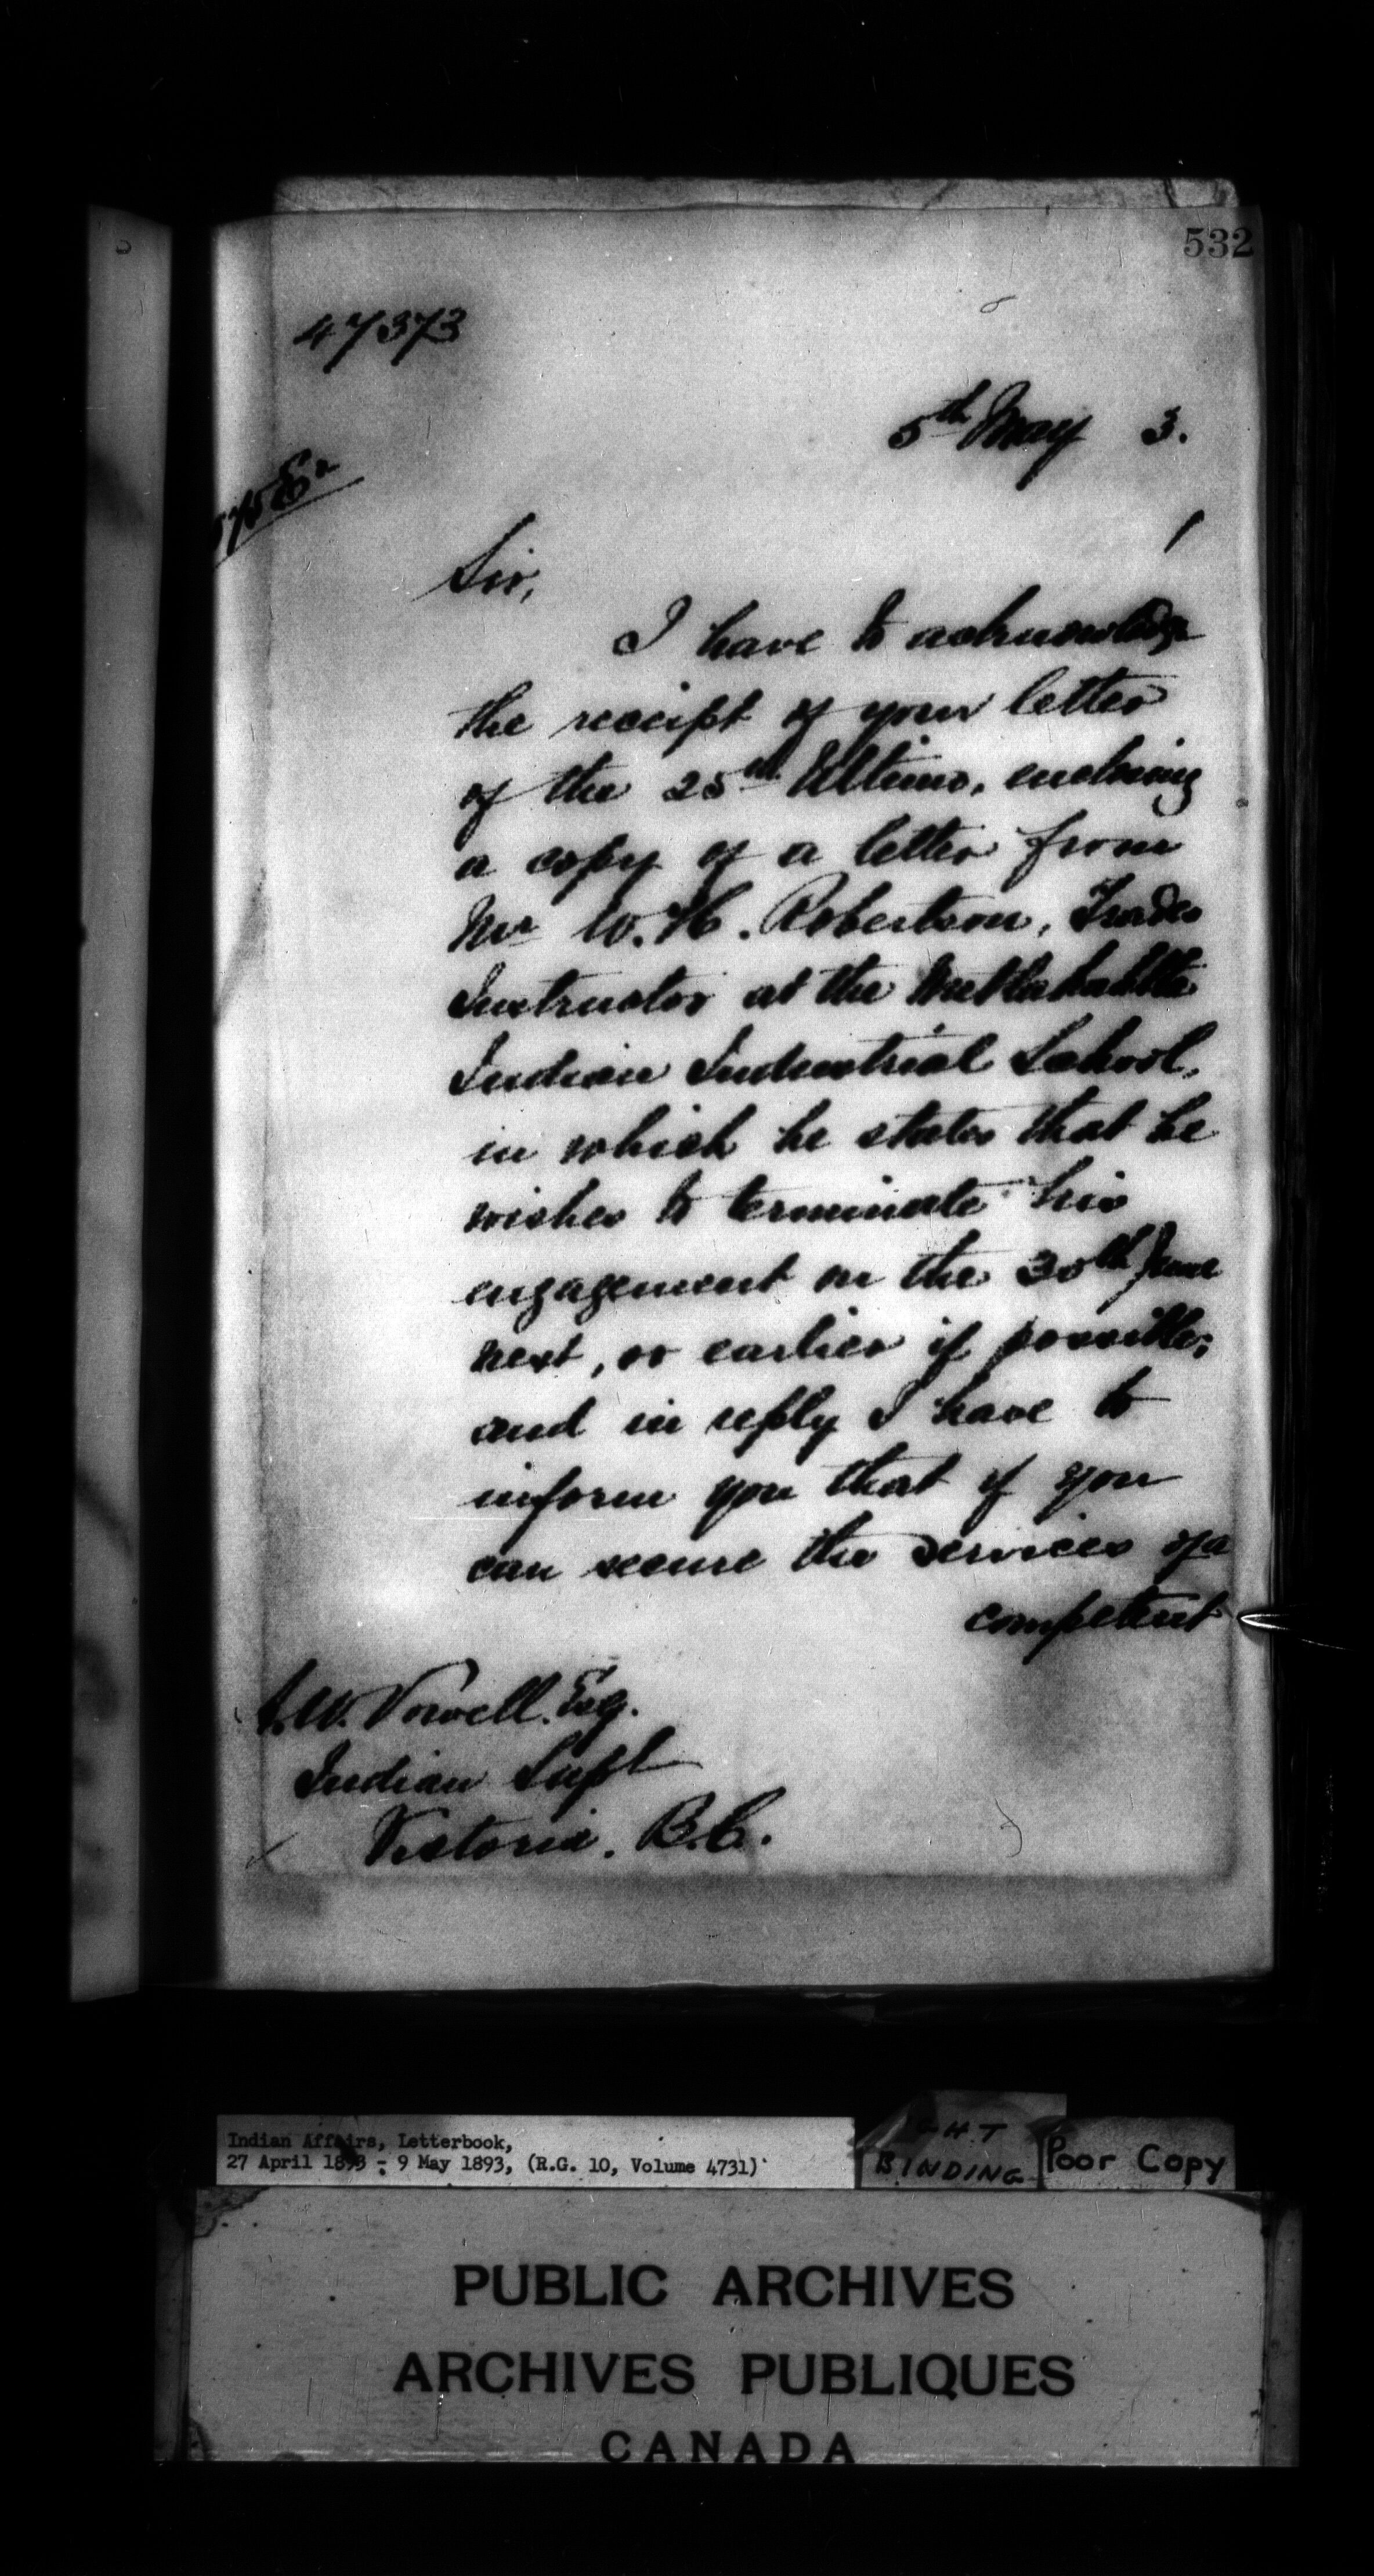 532
47373
5th May 3.
Sir,
I have to acknowledge
the receipt of your letter
of the 25th Ultimo, enclosing
a copy of a letter from
Mr W. H. Robertson, Trades
Instructor at the Metlakahtla
Indian Industrial School,
in which he states that he
wishes to terminate his
engagement on the 30th June
next, or earlier if possible;
and in reply I have to
inform you that if you
can secure the services of a
competent
A. W. Vowell. Esq.
Indian Supt
Victoria. B.C.
Indian Affairs, Letterbook,
27 April 1893 - 9 May 1893, (R.G. 10, Volume 4731)
BINDING
Poor Copy
PUBLIC ARCHIVES
ARCHIVES PUBLIQUES
CANADA